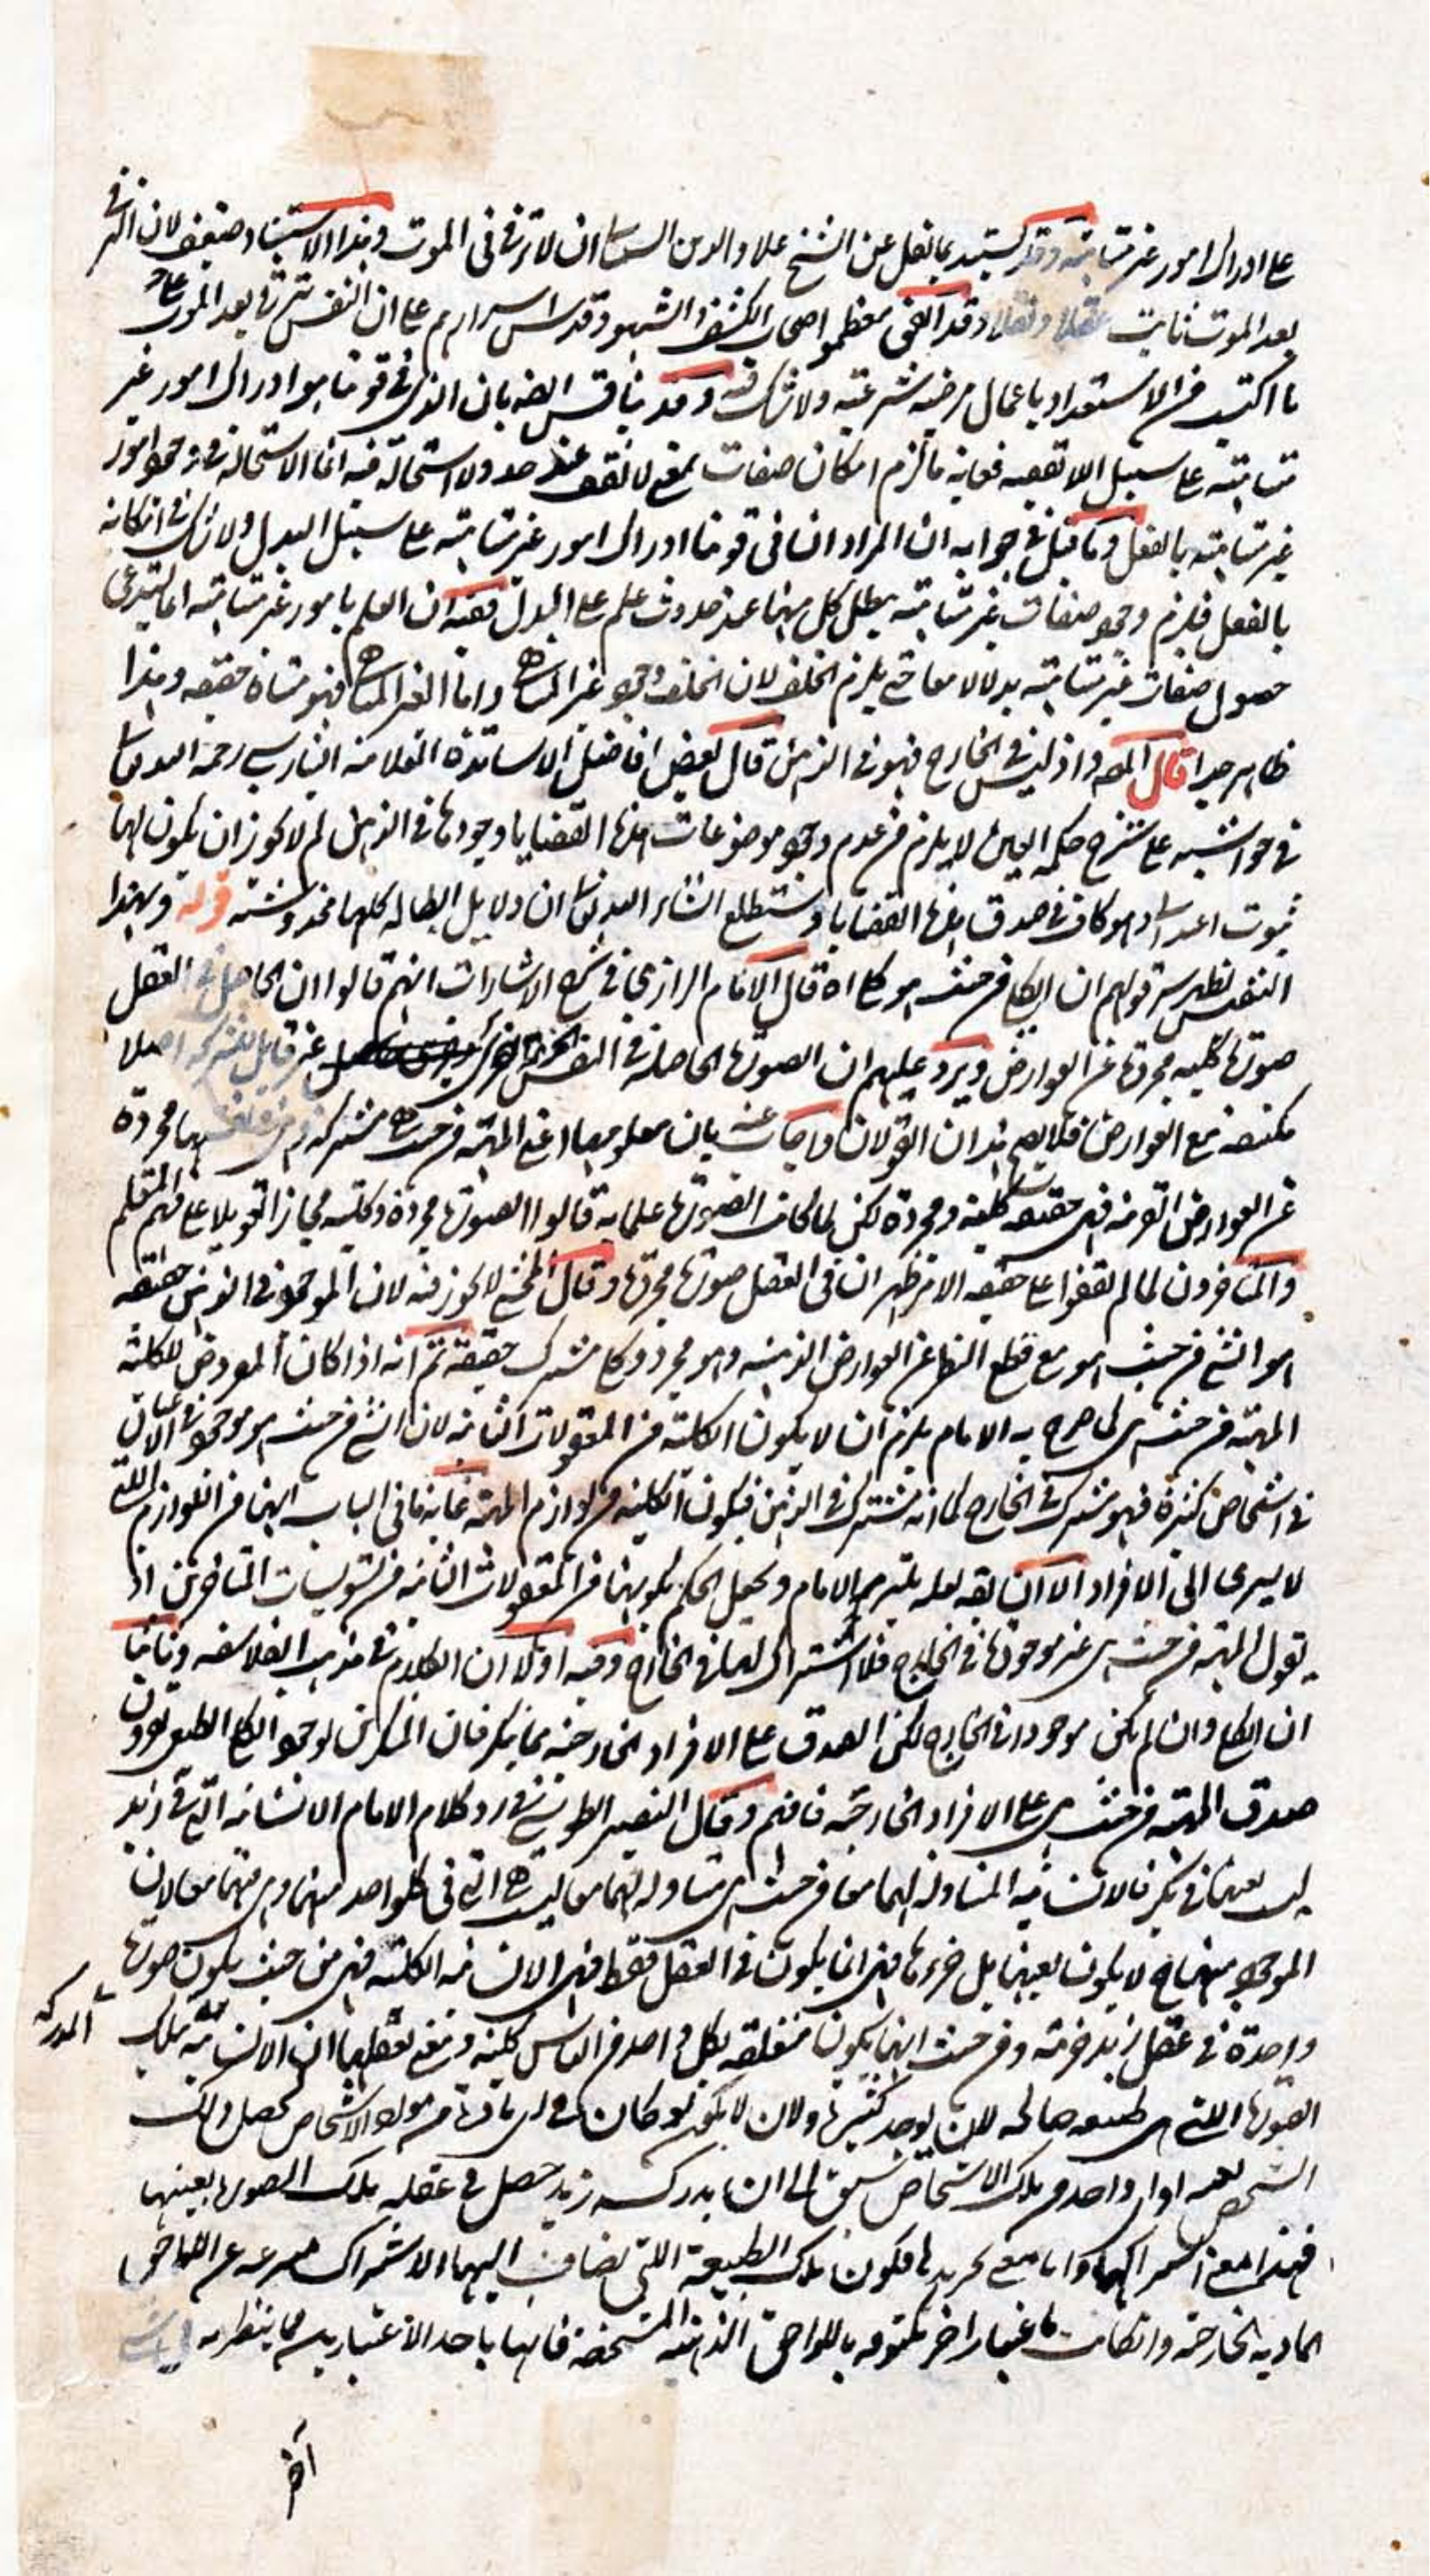 على ادراك امور غير متناهية وقد يستند بما نقل عن الشيخ علاء الدين ان لا ترقى فى الموت وهذا الاستناد ضعيف لان الترقى
بعد الموت ثابت عقلا ونقلا وقد اتفق معظم اصحاب الكشف والشهود قدس اسرارهم على ان النفس تترقى بعد الموت على
ما اكتسب من الاستعداد باعمال مرضية شرعية ولا شك فيه وقد يناقش ايضا بان الذى فى قوتنا هو ادراك امور غير
متناهية على سبيل اللا تقفية فغاية ما لزم امكان صفات بمعنى لا تقف عند حد ولا استحالة فيه انما الاستحالة فى وجود امور
غير متناهية بالفعل وما قيل فى جوابه ان المراد ان فى قوتنا ادراك امور غير متناهية على سبيل البدل ولا شك فى امكانه
بالفعل فلزم وجود صفات غير متناهية يبطل كل منها عند حدوث علم على البدل ففيه ان العلم بامور غير متناهية انما يستدعى
حصول صفات غير متناهية بدلا لا معا حتى يلزم الخلف لان الخلف وجود غير المتناهى واما الغير المتناهى فهو متناه حقيقة وهذا
ظاهر جدا قال المص واذ ليس فى الخارج فهو فى الذهن قال بعض افاضل الاساتذة العلامة رحمه الله تعالى
فى حواشيه على شرح حكمة العين لا يلزم من عدم وجود موضوعات هذه القضايا وجودها فى الذهن لم لا يجوز ان يكون لها
ثبوت وهو كاف فى صدق هذه القضايا وستطلع انشاء الله تعالى ان دلايل ابطاله كلها مخدوشة قوله وبهذا
النفس يظهر سر قولهم ان الكلى من حيث هو كلى اه قال الامام الرازى فى شرح الاشارات انهم قالوا ان الحاصل فى العقل
صورة كلية مجردة عن العوارض ويرد عليهم ان الصورة الحاصلة فى النفس غير قابل للشركة اصلا
مكتنفة مع العوارض فلا يصح هذان القولان واجاب عنه بان معلومها اعنى المهية من حيث هى مشتركة مجردة
عن العوارض الغريبة فهى حقيقة كلية ومجردة لكن لما كانت الصورة علما به قالوا الصورة مجردة وكلية مجازا تعويلا على فهم المتعلم
والمتاخرون لما لم يقفوا على حقيقة الامر ظهر ان فى العقل صورة مجردة وقال لا يجوز فيه لان الموجود فى الذهن حقيقة
هو الشئ من حيث هو مع قطع النظر عن العوارض الذهنية وهو مجرد وكلى مشترك حقيقة ثم انه اذا كان المعروض للكلية
المهية من حيث هى كما صرح به الامام يلزم ان لا يكون الكلية من المعقولات الثانية لان الشئ من حيث هو موجود فى الاعيان
فى اشخاص كثيرة فهو مشترك فى الخارج كما انه مشترك فى الذهن فيكون الكلية من لوازم المهية غاية ما فى الباب انها من اللوازم اللتى
لا يسرى الى الافراد الا ان يقه لعله يلتزمه الامام ويجعل الحكم بكونها من المعقولات الثانية من تسويلات المتاخرين او
يقول المهية من حيث هى غير موجودة فى الخارج فلا اشتراك لها فى الخارج وفيه اولا ان الكلام فى مذهب الفلاسفه وثانيا
ان الكلى وان لم يكن موجودا فى الخارج لكن الصدق على الافراد الخارجية مما ينكر فان المنكرين لوجود الكلى الطبعى
صدق المهية من حيث هى على الافراد الخارجية فافهم وقال النصير الطوسى فى رد كلام الامام الانسانية التى فى زيد
ليست بعينها فى بكر فالانسانية المتناولة لهما معا من حيث هى متناولة لهما معا ليست هى التى فى كل واحد منهما ومنهما معا لان
الموجود منها لا يكون بعينها بل جزء ها فهى انما يكون فى العقل فقط فهى الانسانية الكلية فهى من حيث يكون صورة
واحدة فى عقل زيد جزئية ومن حيث انها يكون متعلقة بكل واحد من الناس كلية ومعنى تعلقها ان الانسانية تلك المدركة
الصورة اللتى هى طبيعة صالحة لان يوجد كثيرة ولان لا يكون لو كان فى اى مادة من مواد الاشخاص يحصل ذلك
الشخص بعينه او اى واحد من تلك الاشخاص سبق الى ان يدركه زيد حصل فى عقله تلك الصورة بعينها
فهذا معنى اشتراكها واما معنى تجريدها فكون تلك الطبيعة اللتى يضاف اليها الاشتراك منزعة عن اللواحق
المادية الخارجية وان كانت باعتبار اخر مكنوفة باللواحق الذهنية المشخصة فانها باحد الاعتبارين مما ينظر به
آخر